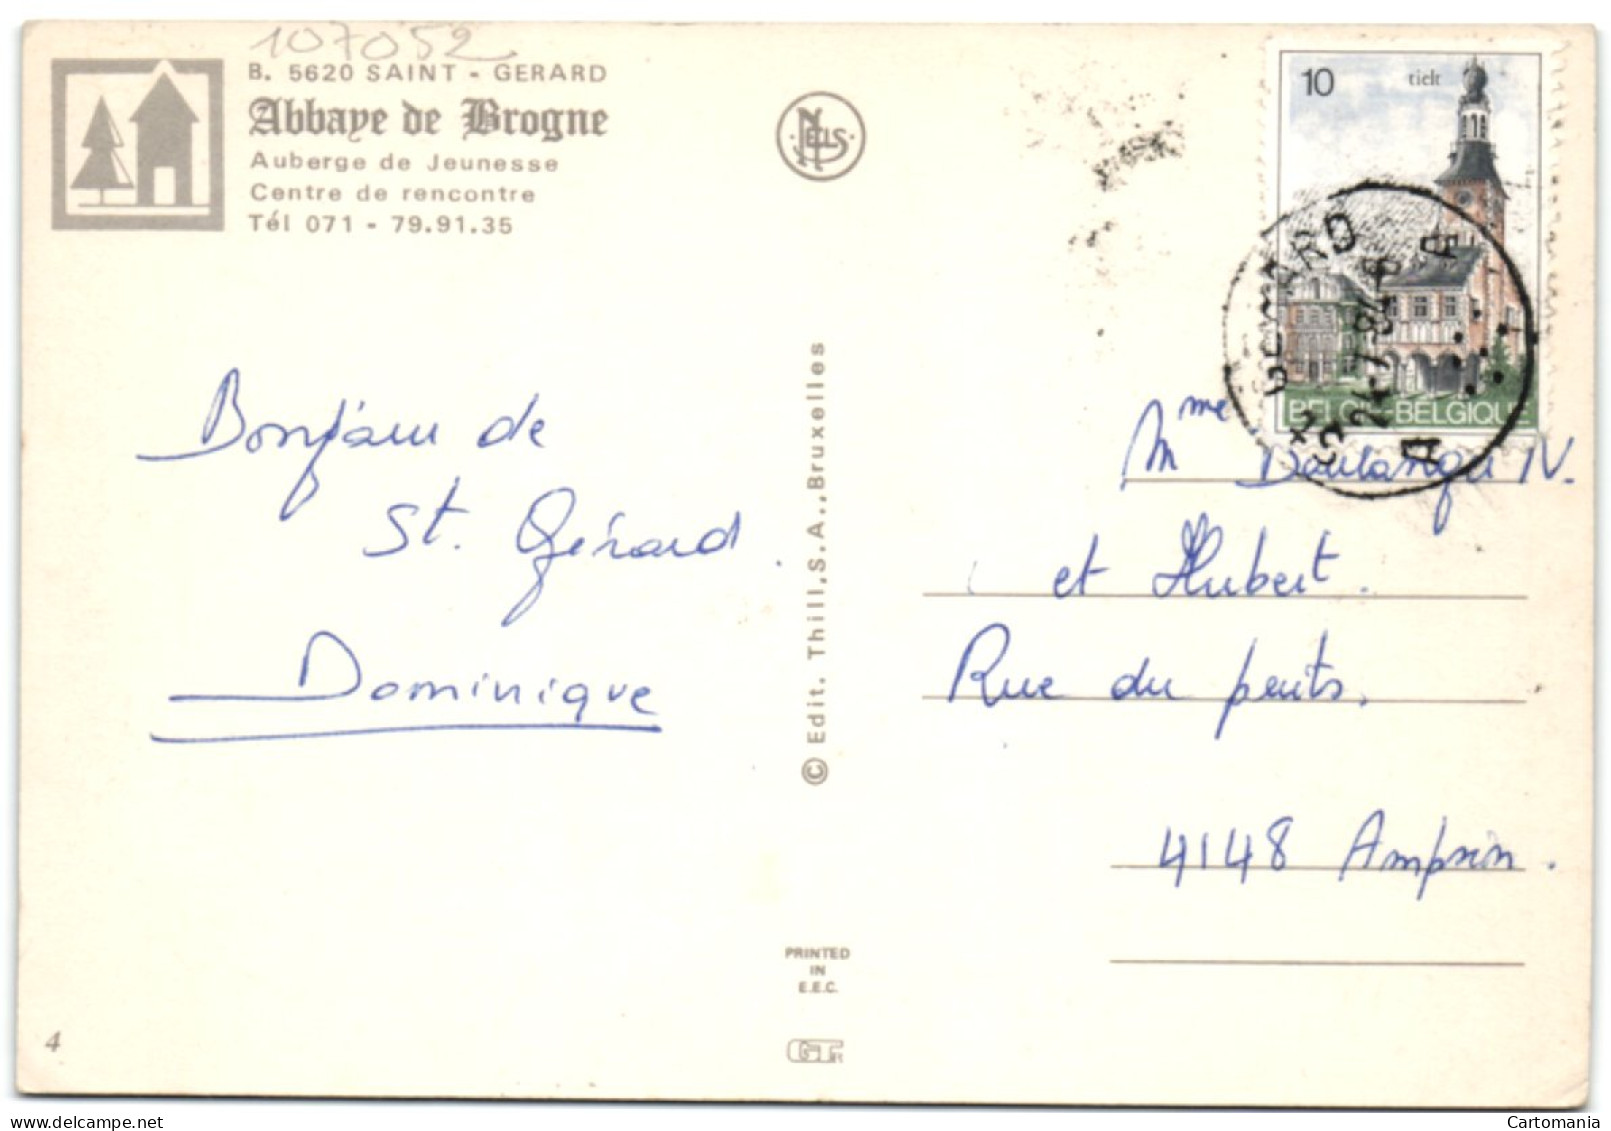 107052
B. 5620 SAINT - GERARD
Abbaye de Brogne
Auberge de Jeunesse
Centre de rencontre
Tél 071 - 79.91.35
NELS
10 tielt
BELGIË-BELGIQUE
GERARD
A A
Bonjour de
St. Gérard.
Dominique
© Edit. Thill, S.A., Bruxelles
Mme Boulanger N.
et Hubert.
Rue du puits,
4148 Ampsin.
PRINTED
IN
E.E.C.
4
www.delcampe.net
Cartomania